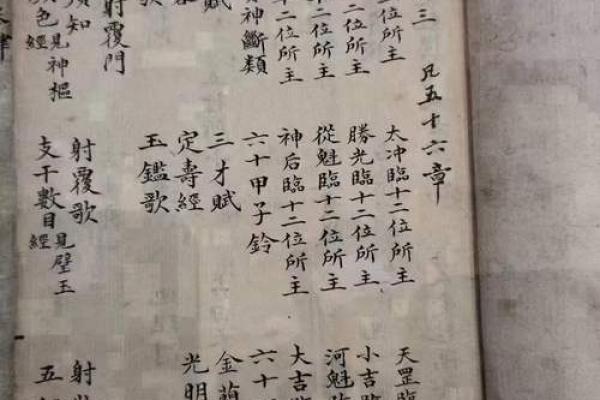 三 凡五十六章
位所主 太冲臨十二位所主 天罡臨
二位所主 勝光臨十二位所主 小吉臨
十二位所主 從魁臨十二位所主 河魁臨
十二位所主 神后臨十二位所主 大吉臨
神斷類 六十甲子鈴 六十
賦 三才賦 金
定壽經 光明
歌 玉鑑歌
射覆門
知 射覆歌 射
色見神樞經 支干數目見璧玉經 五